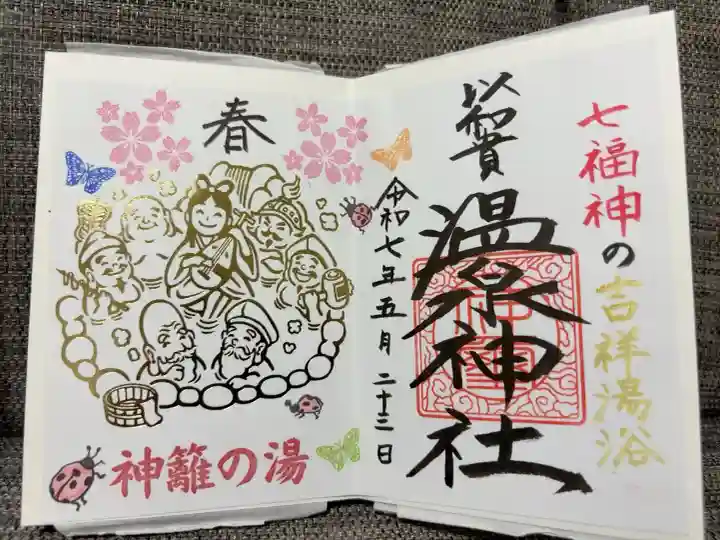 七福神の吉祥湯浴
以和貴
温泉神社
令和七年五月二十三日
春
神籬の湯